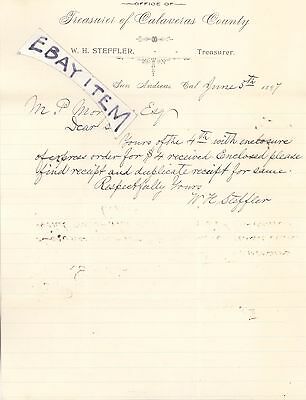 OFFICE OF
Treasurer of Calaveras County
W. H. STEFFLER, Treasurer.
San Andreas, Cal June 5th 1897
EBAY ITEM
M. P. Mor Esq
Dear S
Yours of the 4th with enclosure
of express order for $4 received. Enclosed please
find receipt and duplicate receipt for same.
Respectfully Yours
W H Steffler